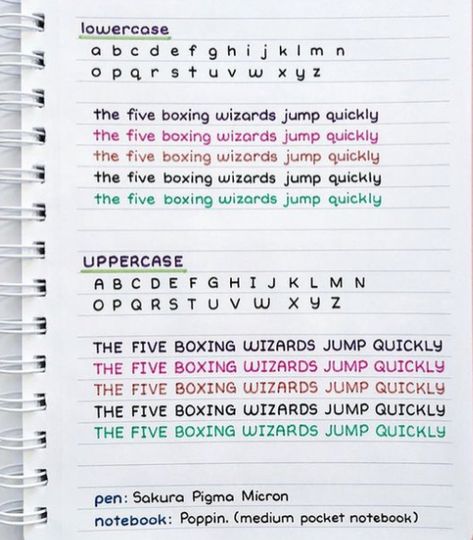 lowercase
a b c d e f g h i j k l m n
o p q r s t u v w x y z
the five boxing wizards jump quickly
the five boxing wizards jump quickly
the five boxing wizards jump quickly
the five boxing wizards jump quickly
the five boxing wizards jump quickly
UPPERCASE
A B C D E F G H I J K L M N
O P Q R S T U V W X Y Z
THE FIVE BOXING WIZARDS JUMP QUICKLY
THE FIVE BOXING WIZARDS JUMP QUICKLY
THE FIVE BOXING WIZARDS JUMP QUICKLY
THE FIVE BOXING WIZARDS JUMP QUICKLY
THE FIVE BOXING WIZARDS JUMP QUICKLY
pen: Sakura Pigma Micron
notebook: Poppin. (medium pocket notebook)